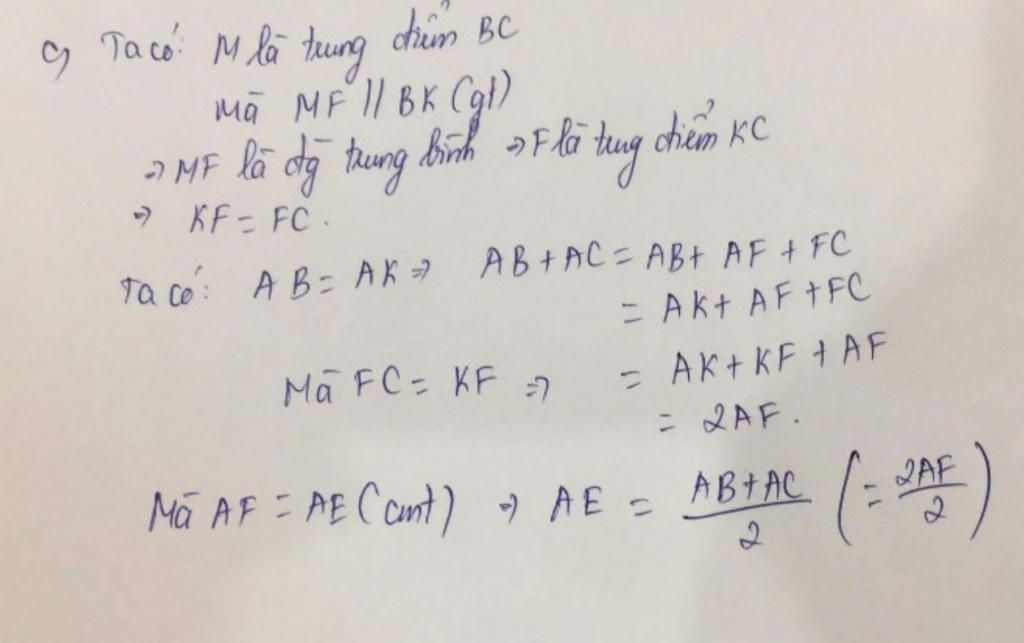 c) Ta có: M là trung điểm BC
Mà MF // BK (gt)
⇒ MF là đg trung bình ⇒ F là trung điểm KC
⇒ KF = FC.
Ta có: AB = AK ⇒ AB + AC = AB + AF + FC
= AK + AF + FC
Mà FC = KF ⇒ = AK + KF + AF
= 2AF.
Mà AF = AE (cmt) ⇒ AE = (AB+AC)/2 (= 2AF/2)